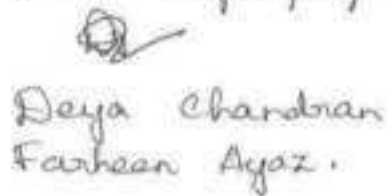 Deya Chandran
Farheen Ayaz.